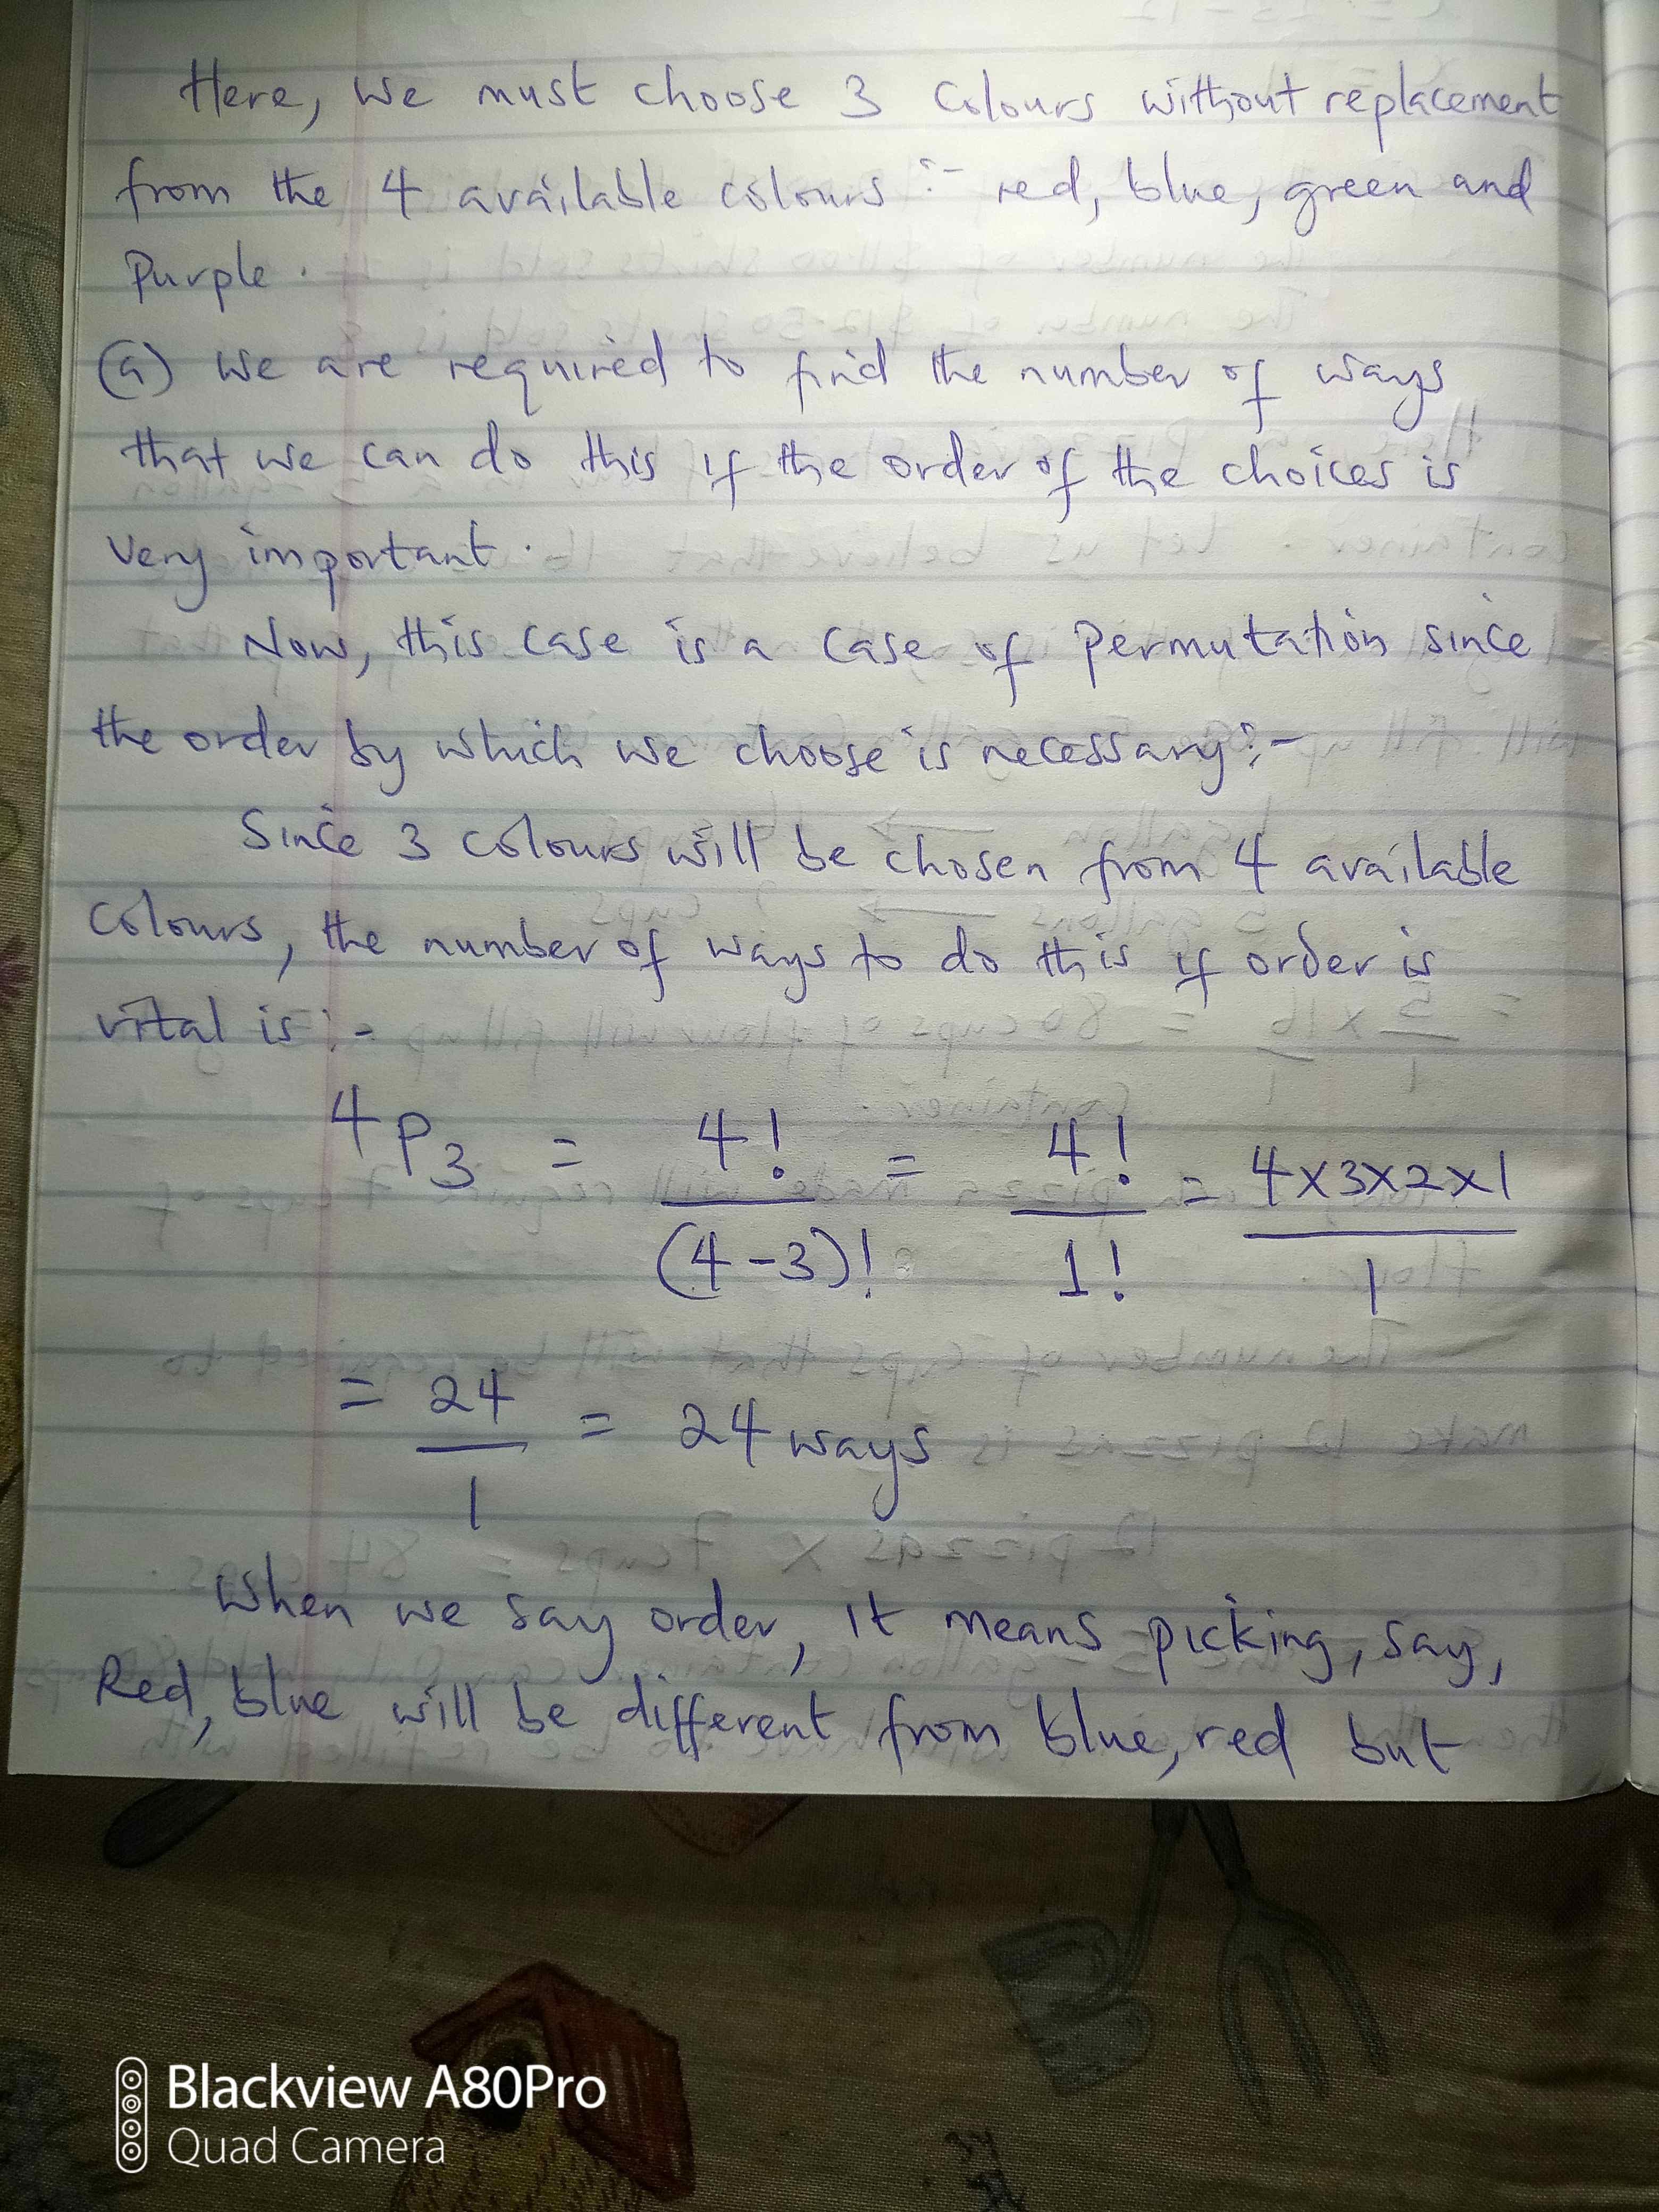 Here, we must choose 3 colours without replacement
from the 4 available colours :- red, blue, green and
Purple.
(a) We are required to find the number of ways
that we can do this if the order of the choices is
very important.
Now, this case is a case of permutation since
the order by which we choose is necessary:-
Since 3 colours will be chosen from 4 available
colours, the number of ways to do this if order is
vital is :-
4P3 = 4!/(4-3)! = 4!/1! = 4x3x2x1/1
= 24/1 = 24 ways
When we say order, it means picking, say,
Red, blue will be different from blue, red but
Blackview A80Pro
Quad Camera